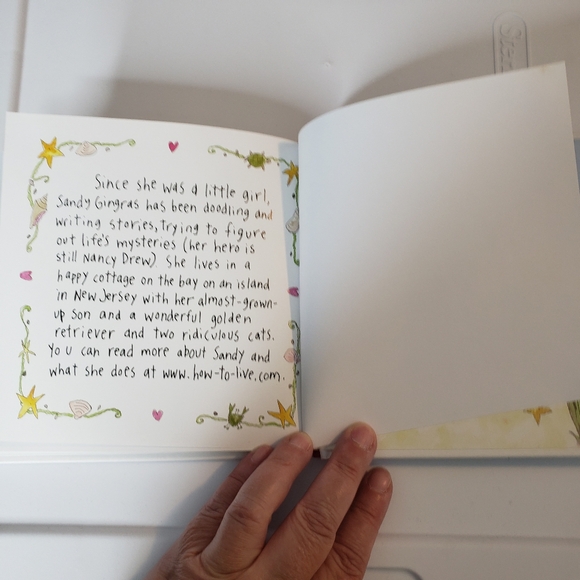 Since she was a little girl,
Sandy Gingras has been doodling and
writing stories, trying to figure
out life's mysteries (her hero is
still Nancy Drew). She lives in a
happy cottage on the bay on an island
in New Jersey with her almost-grown-
up son and a wonderful golden
retriever and two ridiculous cats.
You can read more about Sandy and
what she does at www.how-to-live.com.